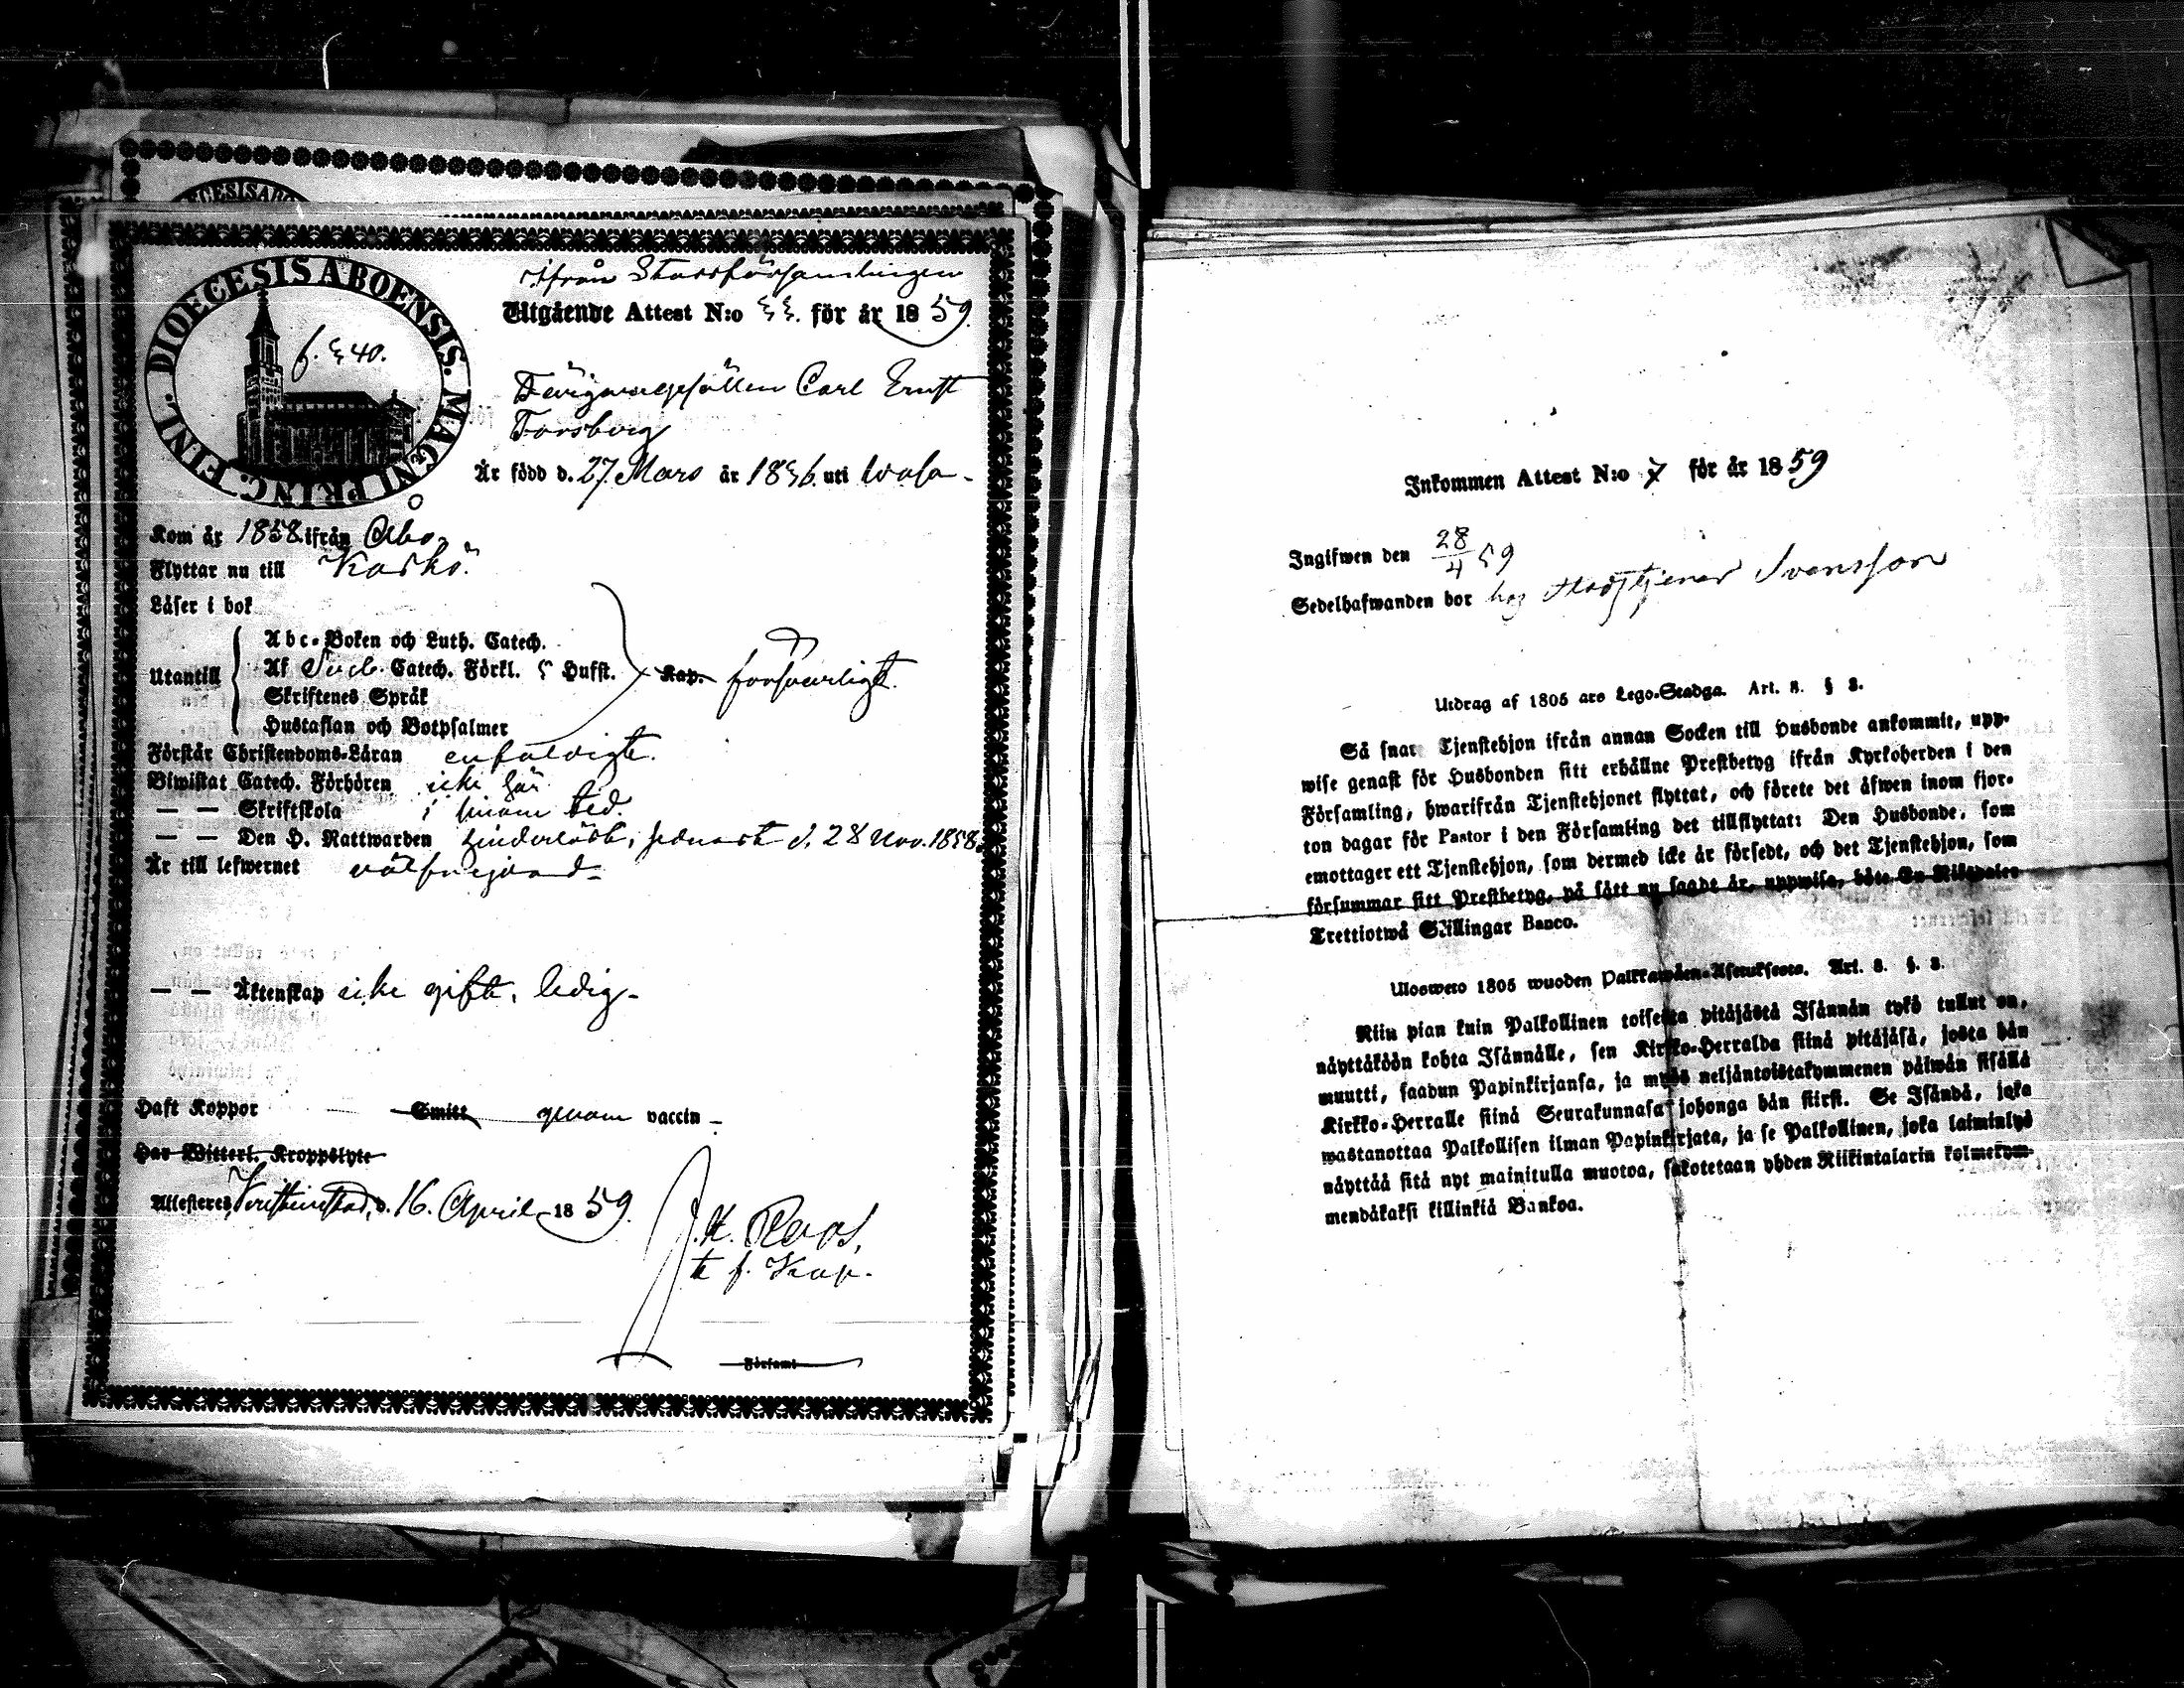 DIOECESIS ABOENSIS. MAGNI PRINC. FINL.
f. 540.
ifrån Stadsförsamlingen
Utgående Attest N:o 55. för år 1859.
Färgaregesällen Carl Ernst
Forsberg
Är född d. 27 Mars år 1836. uti Wasa
Kom år 1858. ifrån Åbo.
Flyttar nu till Kaskö.
Läser i bok
Utantill
Abc-Boken och Luth. Catech.
Af Sveb. Catech. Förkl. 5 Hufst. Kap. försvarligt.
Skriftenes Språk
Hustaflan och Botpsalmer
Förstår Christendoms-Läran enfaldigt.
Biwistat Catech. Förhören icke här.
— — Skriftskola i sinom tid.
— — Den H. Nattwarden hinderlöst, senast d. 28 Nov. 1858.
Är till lefwernet välfrejdad
— — Äktenskap icke gift, ledig
Haft Koppor Smitt genom vaccin
Har Witterl. Kroppslyte
Attesteres, Christinestad, d. 16. April 1859.
J. K. Roos,
tt f. Kap.
Församl
Inkommen Attest N:o 7 för år 1859
Ingifwen den 28/4 59
Sedelhafwanden bor hos Stadstjenar Svensson
Utdrag af 1805 års Lego-Stadga. Art. 8. § 3.
Så snart Tjenstehjon ifrån annan Socken till Husbonde ankommit, upp-
wise genast för Husbonden sitt erhållne Prestbetyg ifrån Kyrkoherden i den
Församling, hwarifrån Tjenstehjonet flyttat, och förete det äfwen inom fjor-
ton dagar för Pastor i den Församling det tillflyttat: Den Husbonde, som
emottager ett Tjenstehjon, som dermed icke är försedt, och det Tjenstehjon, som
försummar sitt Prestbetyg, på sätt nu sagdt är, uppwisa, böte En Riksdaler
Trettiotwå Skillingar Banco.
Ulosweto 1805 wuoden Palkkawäen-Asetuksesta. Art. 8. §. 3.
Niin pian kuin Palkollinen toisesta pitäjästä Isännän tykö tullut on,
näyttäköön kohta Isännälle, sen Kirkko-Herralda siinä pitäjäsä, josta hän
muutti, saadun Papinkirjansa, ja myös neljäntoistakymmenen päiwän sisällä
Kirkko-Herralle siinä Seurakunnasa johonga hän siirsi. Se Isändä, joka
wastanottaa Palkollisen ilman Papinkirjata, ja se Palkollinen, joka laiminlyö
näyttää sitä nyt mainitulla muotoa, sakotetaan yhden Riikintalarin kolmekym-
mendäkaksi killinkiä Bankoa.